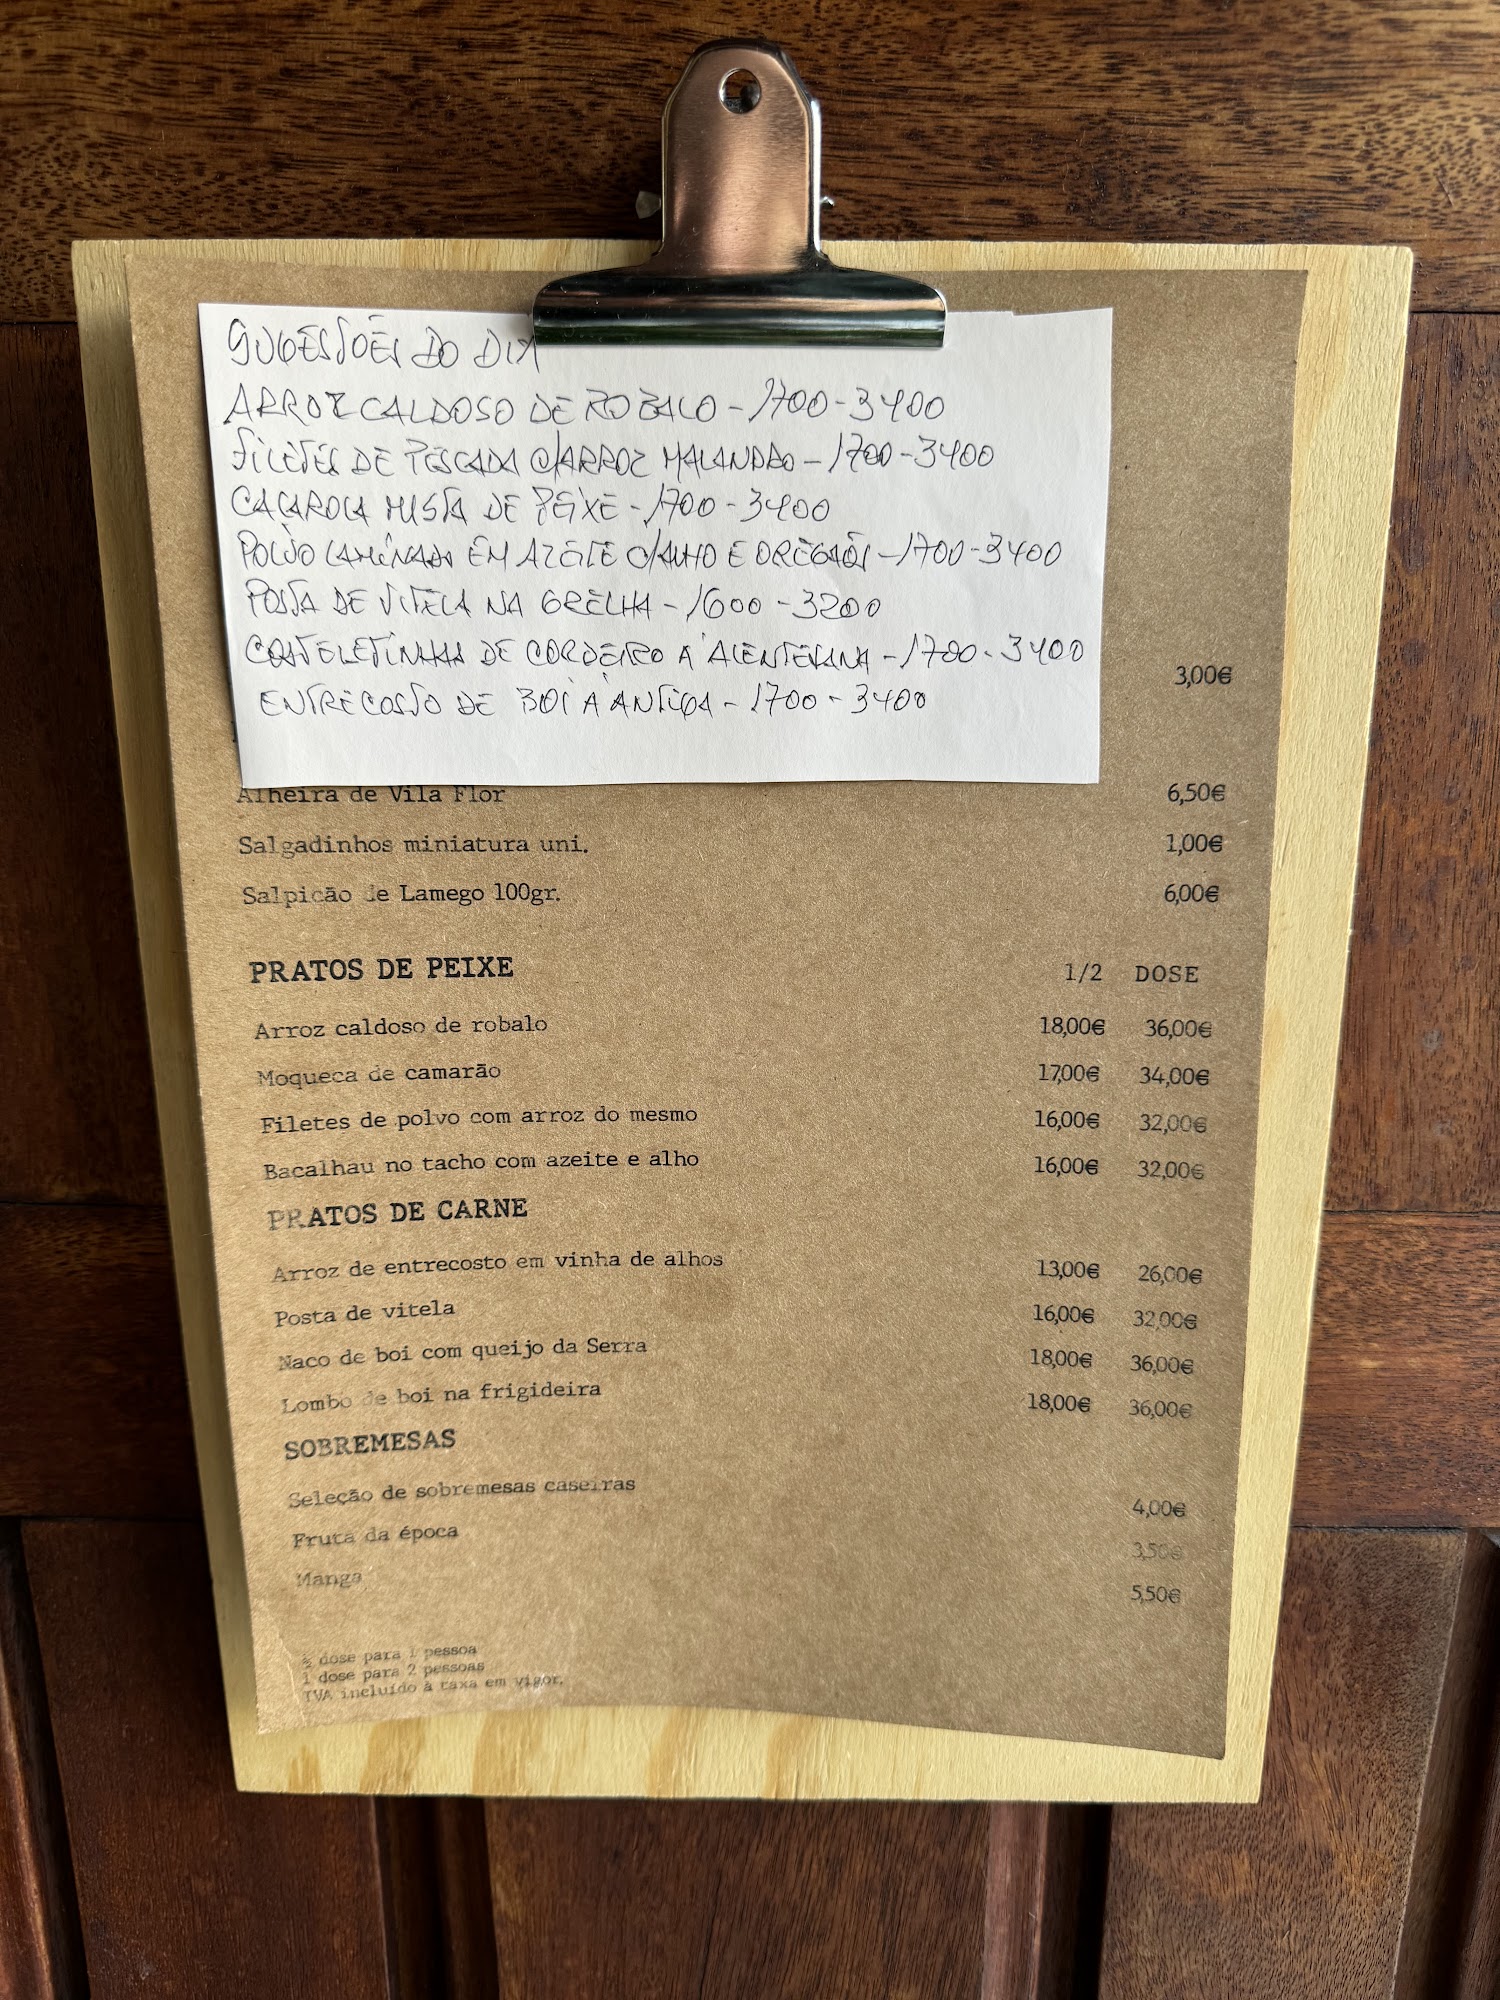 SUGESTÕES DO DIA
ARROZ CALDOSO DE ROBALO - 1700 - 3400
FILETES DE PESCADA C/ARROZ MALANDRO - 1700 - 3400
CAÇAROLA MISTA DE PEIXE - 1700 - 3400
POLVO LAMINADO EM AZEITE C/ALHO E OREGÃOS - 1700 - 3400
POSTA DE VITELA NA GRELHA - 1600 - 3200
COSTELETINHAS DE CORDEIRO A' ALENTEJANA - 1700 - 3400
ENTRECOSTO DE BOI A' ANTIGA - 1700 - 3400
3,00€
Alheira de Vila Flor 6,50€
Salgadinhos miniatura uni. 1,00€
Salpicão de Lamego 100gr. 6,00€
PRATOS DE PEIXE 1/2 DOSE
Arroz caldoso de robalo 18,00€ 36,00€
Moqueca de camarão 17,00€ 34,00€
Filetes de polvo com arroz do mesmo 16,00€ 32,00€
Bacalhau no tacho com azeite e alho 16,00€ 32,00€
PRATOS DE CARNE
Arroz de entrecosto em vinha de alhos 13,00€ 26,00€
Posta de vitela 16,00€ 32,00€
Naco de boi com queijo da Serra 18,00€ 36,00€
Lombo de boi na frigideira 18,00€ 36,00€
SOBREMESAS
Seleção de sobremesas caseiras 4,00€
Fruta da época 3,50€
Manga 5,50€
½ dose para 1 pessoa
1 dose para 2 pessoas
IVA incluído à taxa em vigor.